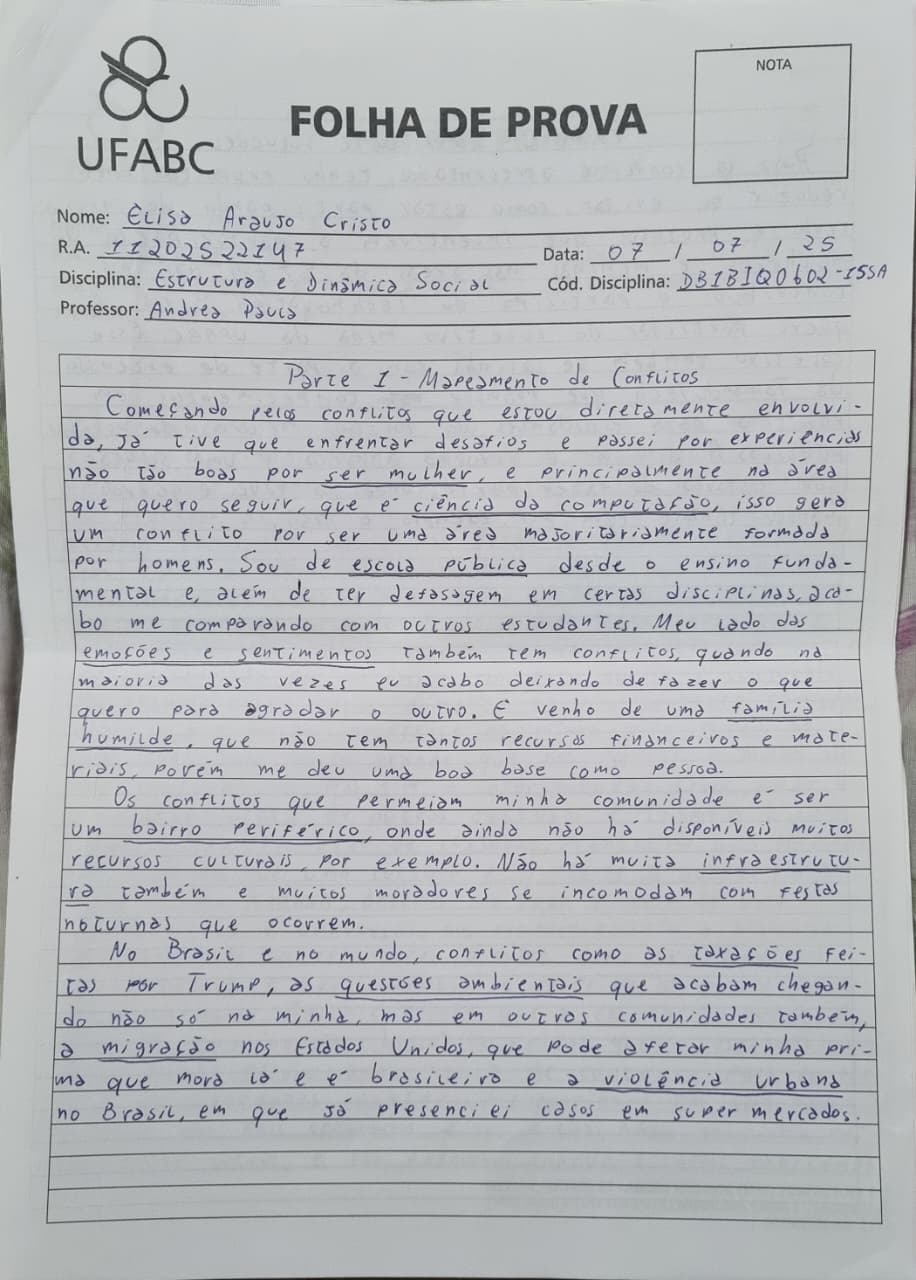 UFABC
FOLHA DE PROVA
NOTA
Nome: Élisa Araujo Cristo
R.A. 11202522147
Data: 07 / 07 / 25
Disciplina: Estrutura e Dinâmica Social
Cód. Disciplina: DB1BIQ0602-15SA
Professor: Andrea Paula
Parte I - Mapeamento de Conflitos
Começando pelos conflitos que estou diretamente envolvi-
da, já tive que enfrentar desafios e passei por experiências
não tão boas por ser mulher, e principalmente na área
que quero seguir, que é ciência da computação, isso gera
um conflito por ser uma área majoritariamente formada
por homens. Sou de escola pública desde o ensino funda-
mental e, além de ter defasagem em certas disciplinas, aca-
bo me comparando com outros estudantes. Meu lado das
emoções e sentimentos também tem conflitos, quando na
maioria das vezes eu acabo deixando de fazer o que
quero para agradar o outro. E venho de uma família
humilde, que não tem tantos recursos financeiros e mate-
riais, porém me deu uma boa base como pessoa.
Os conflitos que permeiam minha comunidade é ser
um bairro periférico, onde ainda não há disponíveis muitos
recursos culturais, por exemplo. Não há muita infraestrutu-
ra também e muitos moradores se incomodam com festas
noturnas que ocorrem.
No Brasil e no mundo, conflitos como as taxações fei-
tas por Trump, as questões ambientais que acabam chegan-
do não só na minha, mas em outras comunidades também,
a migração nos Estados Unidos, que pode afetar minha pri-
ma que mora lá e é brasileira e a violência urbana
no Brasil, em que já presenciei casos em super mercados.